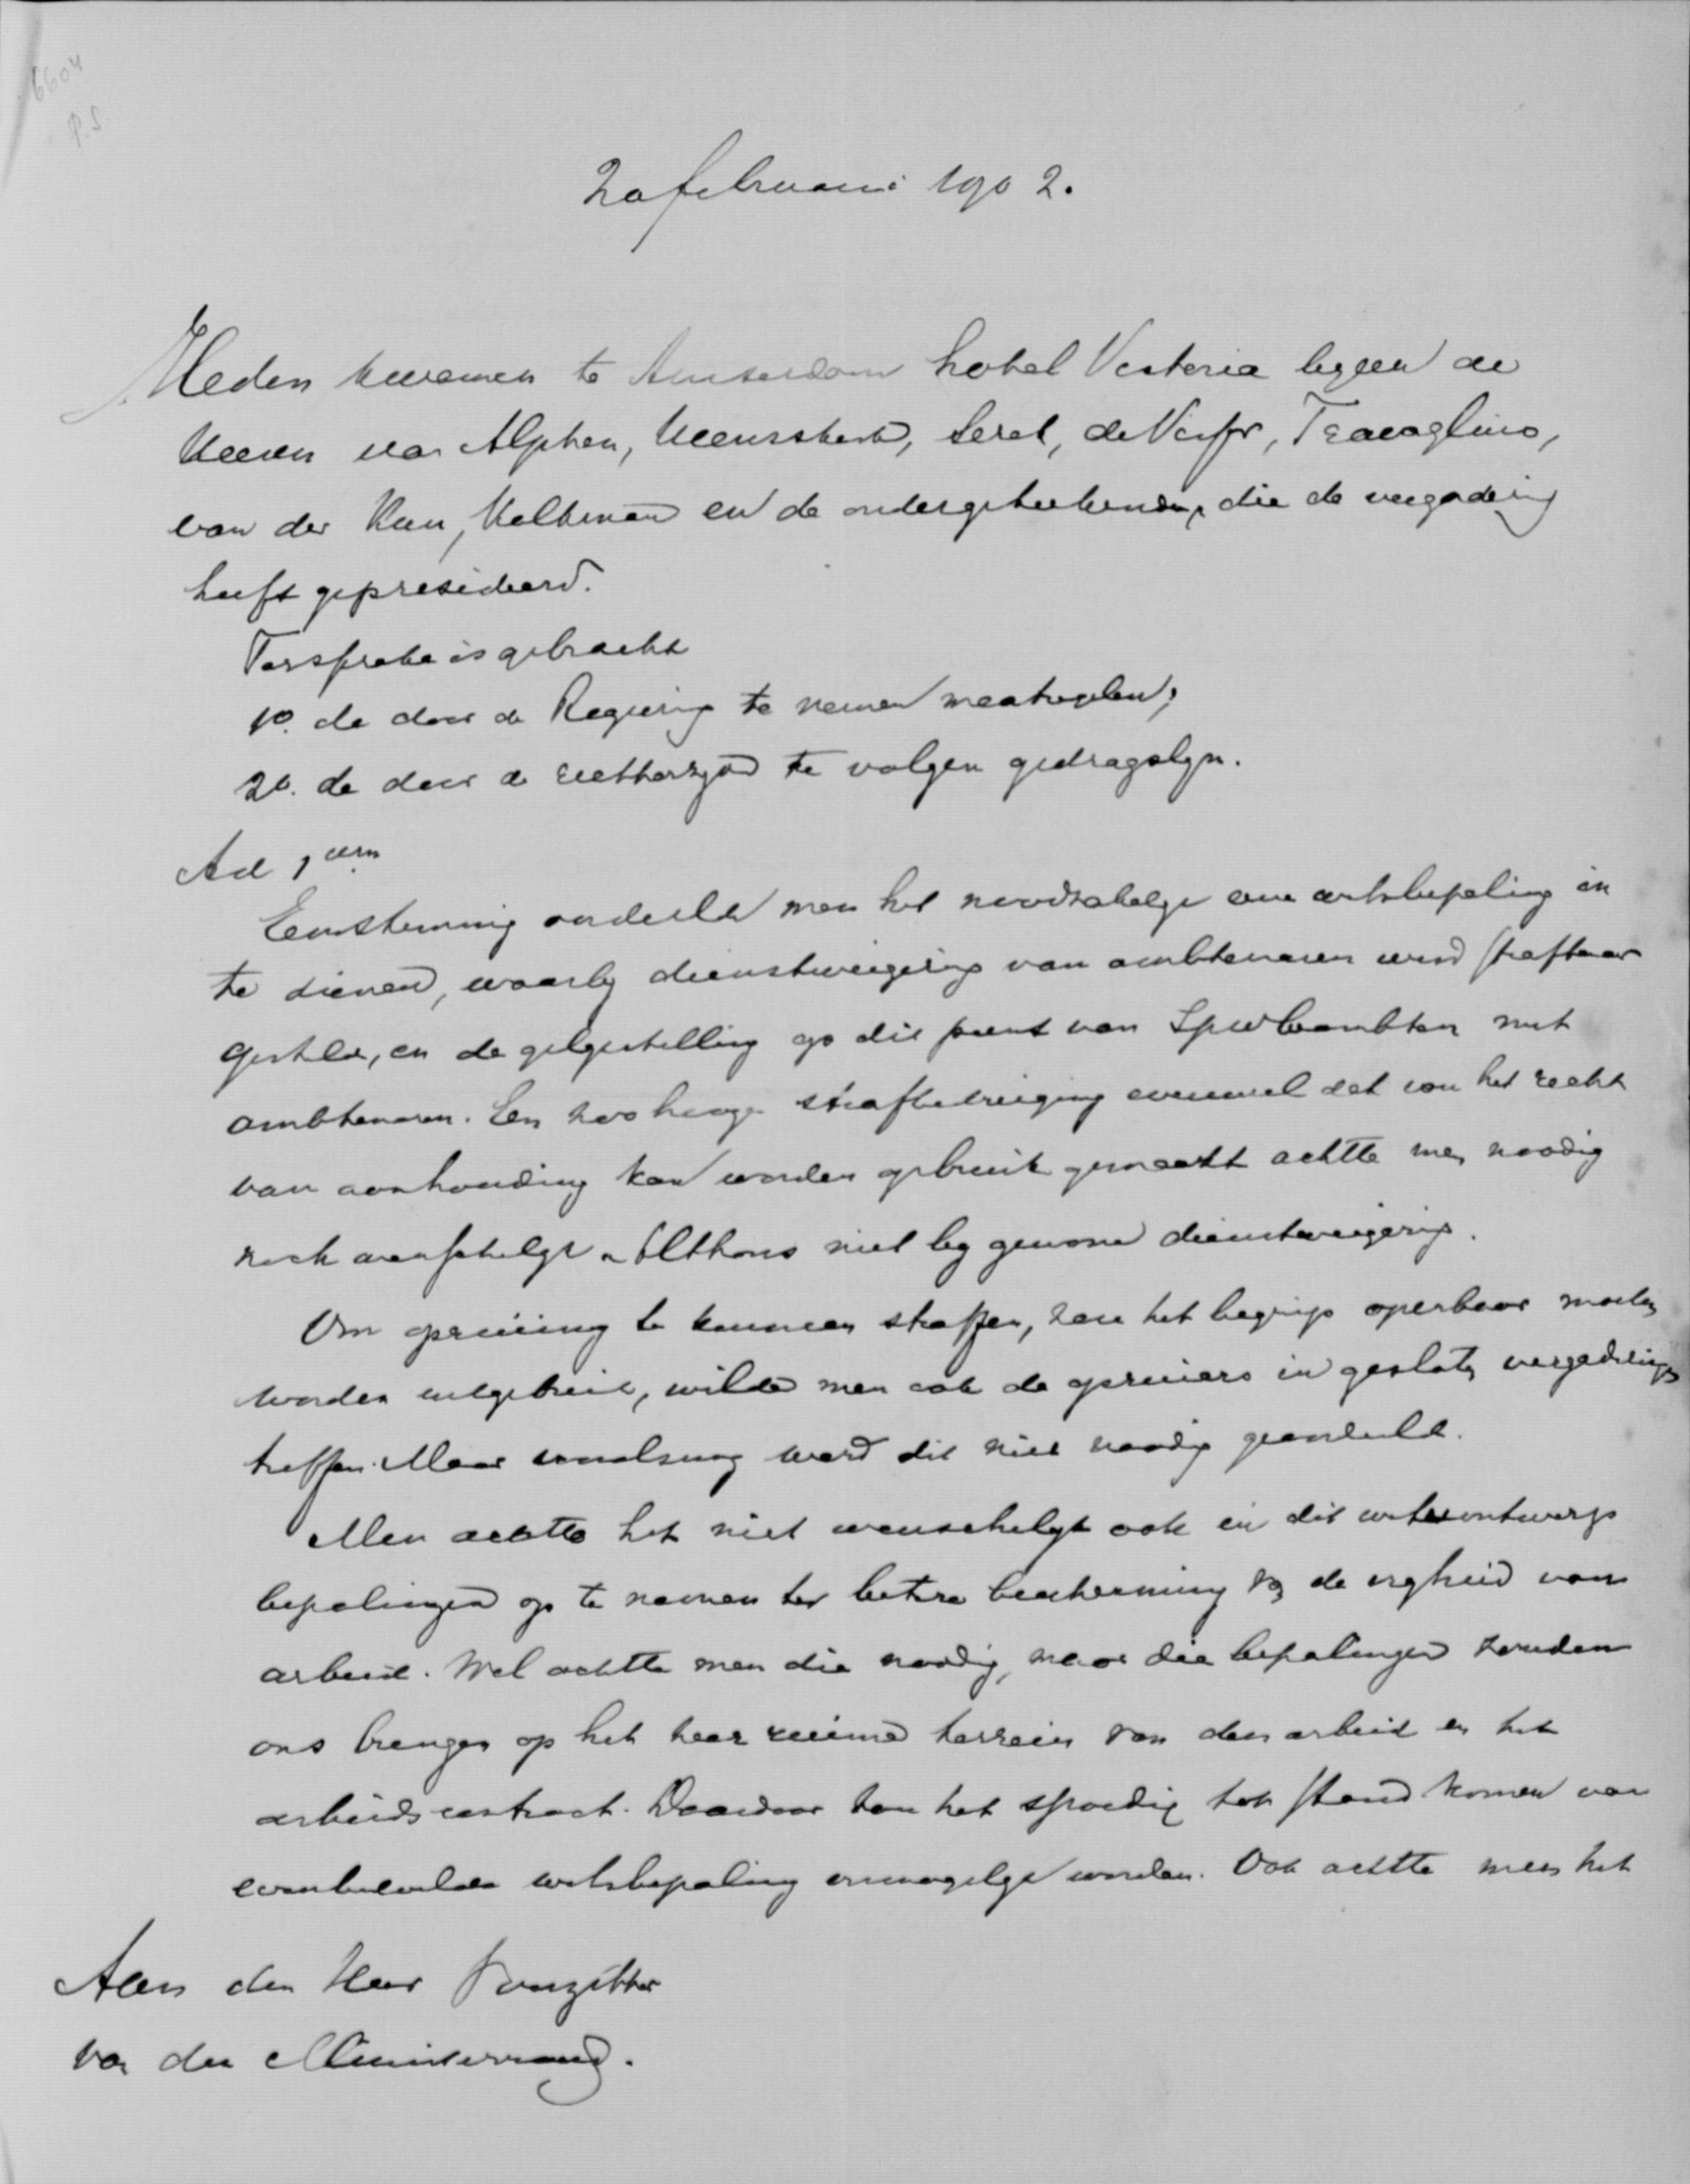 6604
P.S
20 februari 1902.
Heden kwamen te Amsterdam hotel Victoria bijeen de
Heeren van Alphen, Heemskerk, Seret, de Visser, Travaglino,
van der Kun, Veltman en de ondergeteekende, die de vergadering
heeft gepresideerd.
Ter sprake is gebracht
1o. de door de Regeering te nemen maatregelen;
2o. de door de rechterzijde te volgen gedragslijn.
Ad 1um
Eenstemmig oordeelde men het noodzakelijk eene wetsbepaling in
te dienen, waarbij dienstweigering van ambtenaren werd strafbaar
gesteld, en de gelijkstelling op dit punt van Spoorbeambten met
ambtenaren. Een zoo hooge strafbedreiging evenwel dat van het recht
van aanhouding kan worden gebruik gemaakt achtte men noodig
noch wenschelijk. Althans niet bij gewone dienstweigering.
Om opruiing te kunnen straffen, zou het begrip openbaar moeten
worden uitgebreid, wilde men ook de opruiers in gesloten vergaderingen
treffen. Maar vooralsnog werd dit niet noodig geoordeeld.
Men achtte het niet wenschelijk ook in dit wetsontwerp
bepalingen op te nemen ter betere bescherming van de vrijheid van
arbeid. Wel achtte men die noodig, maar die bepalingen zouden
ons brengen op het zeer ruime terrein van den arbeid en het
arbeidscontract. Daardoor zou het spoedig tot stand komen van
evenbedoelde wetsbepaling onmogelijk worden. Ook achtte men het
Aan den Heer Voorzitter
van den Ministerraad.